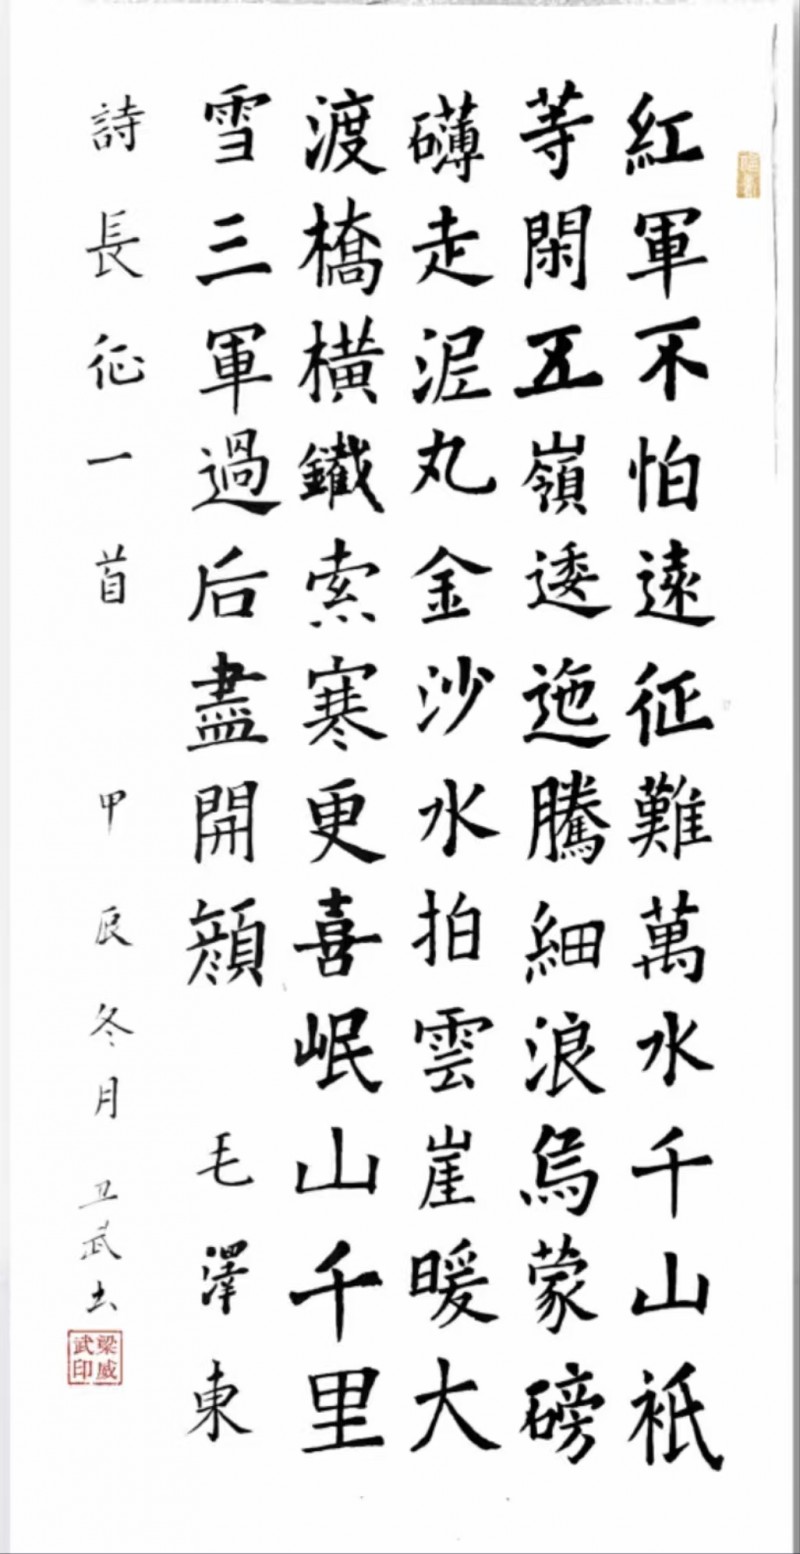 紅軍不怕遠征難萬水千山衹
等閑五嶺逶迤騰細浪烏蒙磅
礴走泥丸金沙水拍雲崖暖大
渡橋橫鐵索寒更喜岷山千里
雪三軍過后盡開顔 毛澤東
詩長征一首 甲辰冬月 卫武书
梁威武印